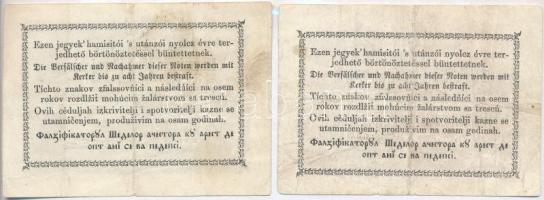 Ezen jegyek' hamisitói 's utánzói nyolcz évre ter-
jedhető börtönöztetéssel büntettetnek.
Die Verfälscher und Nachahmer dieser Noten werden mit
Kerker bis zu acht Jahren bestraft.
Tíchto znakov zfalssovńíci a následńíci na osem
rokov rozdlžit mohúcim žalárstvom sa trescú.
Ovih ceduljah izkrivitelji i spotvoritelji kazne se
utamničenjem, produživim na osam godinah.
Фалзіфікаторꙋл Шеделор ачестора кꙋ арест де
опт анĭ се ва педепсі.
Ezen jegyek' hamisitói 's utánzói nyolcz évre ter-
jedhető börtönöztetéssel büntettetnek.
Die Verfälscher und Nachahmer dieser Noten werden mit
Kerker bis zu acht Jahren bestraft.
Tíchto znakov zfalssovńíci a následńíci na osem
rokov rozdlžit mohúcim žalárstvom sa trescú.
Ovih ceduljah izkrivitelji i spotvoritelji kazne se
utamničenjem, produživim na osam godinah.
Фалзіфікаторꙋл Шеделор ачестора кꙋ арест де
опт анĭ се ва педепсі.